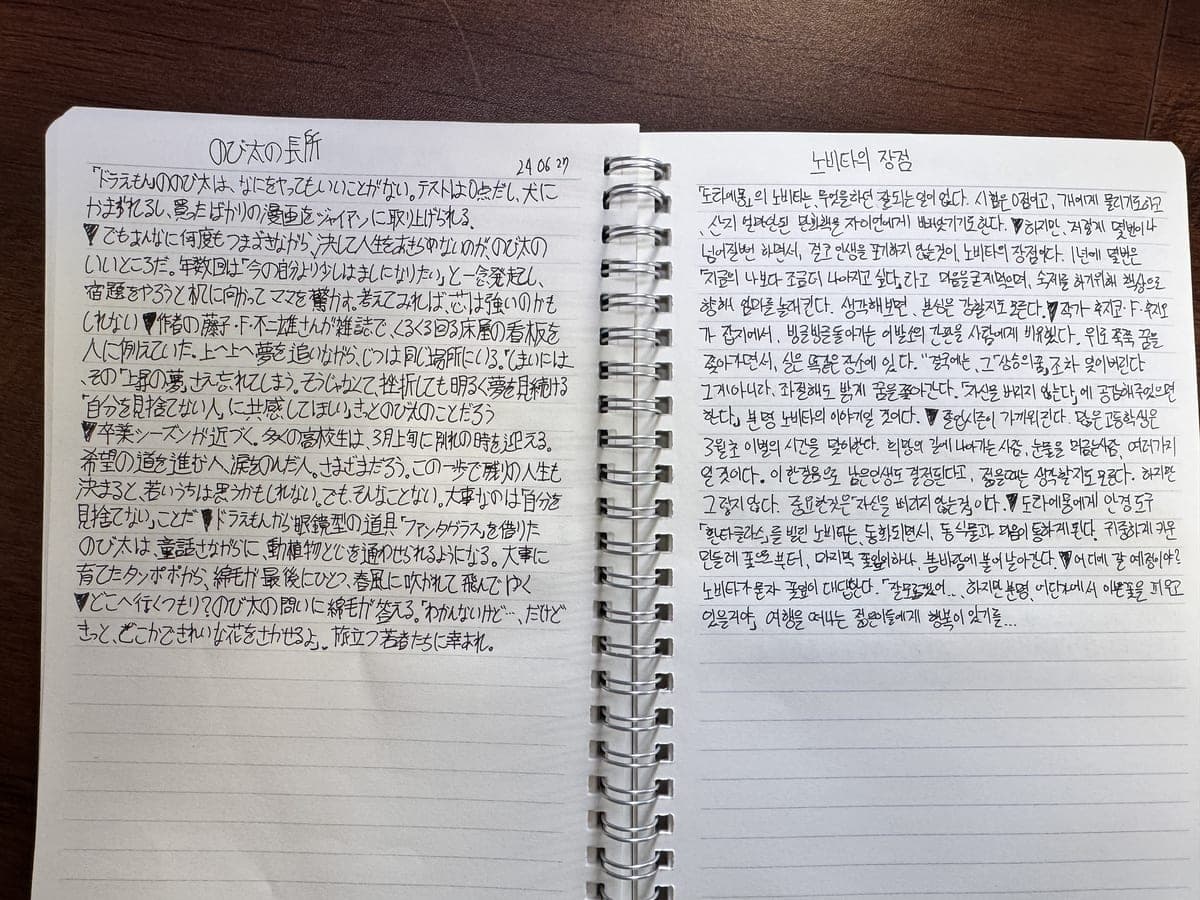 のび太の長所
24 06 27
「ドラえもん」ののび太は、なにをやってもいいことがない。テストは0点だし、犬に
かまずれるし、買ったばかりの漫画をジャイアンに取り上げられる。
▼でもあんなに何度もつまずきながら、決して人生をあきらめないのが、のび太の
いいところだ。年数回は「今の自分より少しはましになりたい」と一念発起し、
宿題をやろうと机に向かってママを驚かす。考えてみれば、芯は強いのかも
しれない▼作者の藤子・F・不二雄さんが雑誌で、くるくる回る床屋の看板を
人に例えていた。上へ上へ夢を追いながら、じつは同じ場所にいる。「しまいには
、その「上昇の夢」さえ忘れてしまう。そうじゃなくて、挫折しても明るく夢を見続ける
「自分を見捨てない人」に共感してほしい」きっとのび太のことだろう
▼卒業シーズンが近づく。多くの高校生は、3月上旬に別れの時を迎える。
希望の道を進む人、涙をのんだ人。さまざまだろう。この一歩で残りの人生も
決まると、若いうちは思うかもしれない。でもそんなことない。大事なのは「自分を
見捨てない」ことだ▼ドラえもんから眼鏡型の道具「ファンタグラス」を借りた
のび太は、童話さながらに、動植物と心を通わせられるようになる。大事に
育てたタンポポから、綿毛が最後にひとつ、春風に吹かれて飛んでゆく
▼どこへ行くつもり?のび太の問いに綿毛が答える。「わかんないけど…、だけど
きっと、どこかできれいな花をさかせるよ」。旅立つ若者たちに幸あれ。
노비타의 장점
「도라에몽」의 노비타는, 무엇을하던 잘되는일이 없다. 시험은 0점이고, 개에게 물리기도하고
, 산지 얼마안된 만화책을 자이언에게 빼앗기기도한다. ▼하지만, 저렇게 몇번이나
넘어질번 하면서, 결코 인생을 포기하지 않는것이 노비타의 장점이다. 1년에 몇번은
「지금의 나보다 조금더 나아지고 싶다」라고 마음을굳게먹으며, 숙제를 하기위해 책상으로
향해 엄마를 놀래킨다. 생각해보면, 본심은 강할지도 모른다. ▼작가 후지코·F·후지오
가 잡지에서, 빙글빙글돌아가는 이발소의 간판을 사람에게 비유했다. 위로 쭉쭉 꿈을
쫓아가면서, 실은 똑같은 장소에 있다. "결국에는, 그「상승의꿈」조차 잊어버린다
그게아니라, 좌절해도 밝게 꿈을쫓아간다. 「자신을 버리지 않는다」에 공감해주었으면
한다」 분명 노비타의 이야기일 것이다. ▼ 졸업시즌이 가까워진다. 많은고등학생은
3월초 이별의 시간을 맞이한다. 희망의 길에 나아가는 사람, 눈물을 머금은사람, 여러가지
일 것이다. 이 한걸음으로 남은인생도 결정된다고, 젊을때는 생각할지도 모른다. 하지만
그렇지 않다. 중요한것은「자신을 버리지 않는것」이다. ▼도라에몽에게 안경 도구
「환타글라스」를 빌린 노비타는, 동화되면서, 동식물과 마음이 통하게된다. 귀중하게 키운
민들레 꽃으로부터, 마지막 꽃잎이하나, 봄바람에 불어 날아간다. ▼어디에 갈 예정이야?
노비타가 묻자 꽃잎이 대답했다. 「잘모르겠어…, 하지만 분명, 어딘가에서 이쁜꽃을 피우고
있을거야」 여행을 떠나는 젊은이들에게 행복이 있기를…